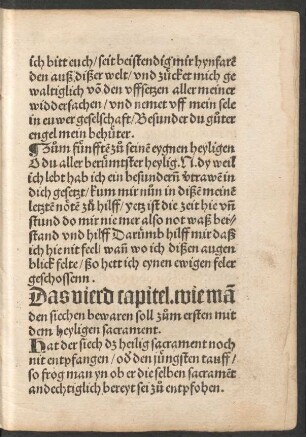 ich bitt euch/ seit beistendig mir hynfarē
den auß dißer welt/ vnd zücket mich ge
waltiglich vō den vffsetzen aller meiner
widdersachen/ vnd nemet vff mein sele
in euwer geselschaft/ Besunder du gůter
engel mein behüter.
¶ Zům fünfftē zu seinē eygnen heyligen
O du aller berümtster heylig. N. dy weil
ich lebt hab ich ein besunderñ vtrawē in
dich gesetzt/ kum mir nůn in dißē meinē
letztē nötē zů hilff/ yetz ist die zeit hie vñ
stund do mir nie mer also not waß bei-
stand vnd hilff Darumb hilff mir daß
ich hie nit feel/ wañ wo ich dißen augen
blick felte/ ßo hett ich eynen ewigen feler
geschossenn.
Das vierd capitel. wie mā
den siechen bewaren soll zům ersten mit
dem heyligen sacrament.
Hat der siech dz heilig sacrament noch
nit entpfangen/ oď den jüngsten tauff/
so frog man yn ob er die selben sacramēt
andechtiglich bereyt sei zů entpfohen.